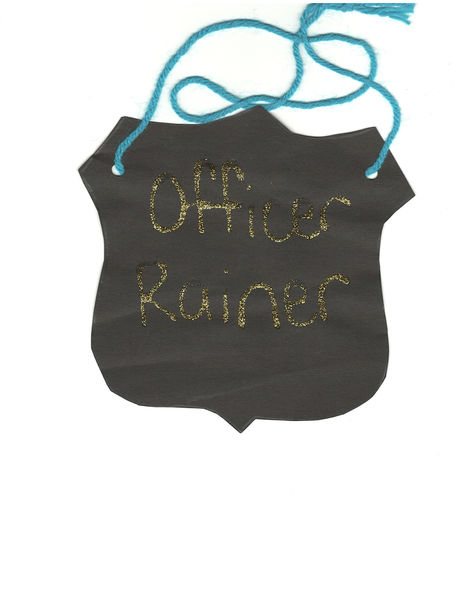 Officer
Rainer